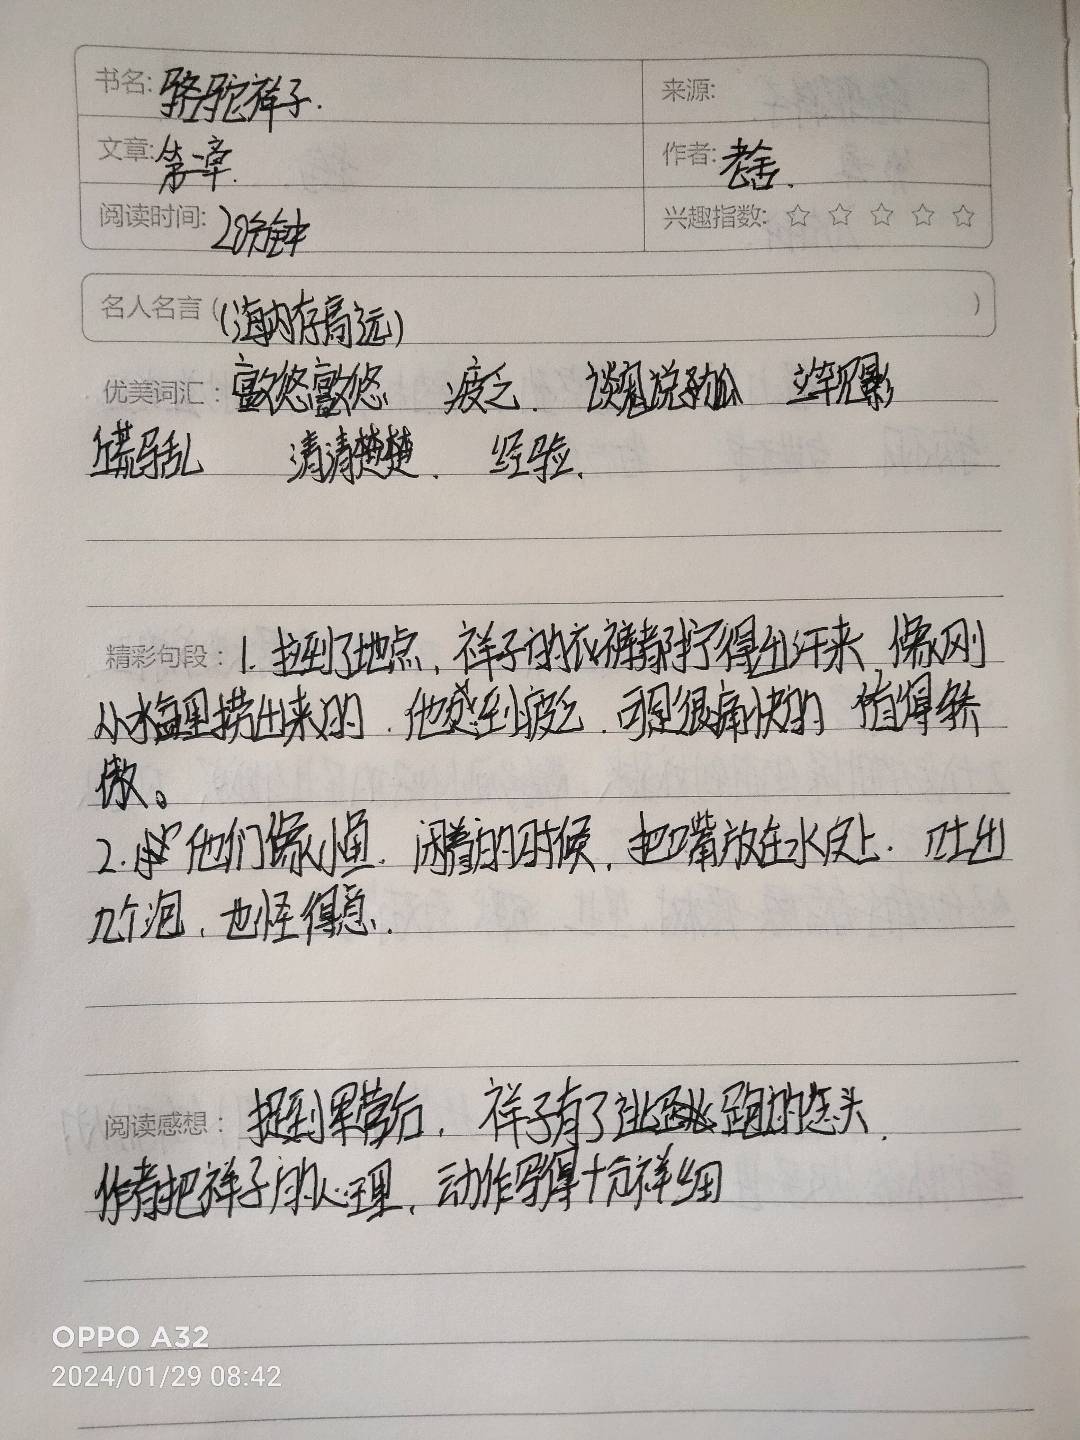 书名: 骆驼祥子. 来源:
文章: 第一章. 作者: 老舍.
阅读时间: 20分钟 兴趣指数: ☆ ☆ ☆ ☆ ☆
名人名言 ( (海内存高远) )
优美词汇: 疲乏. 谈鬼说狐
慌马乱 清清楚楚. 经验.
精彩句段: 1. 拉到了地点, 祥子的衣裤都拧得出汗来, 像刚
从水盆里捞出来的. 他感到疲乏. 可是很痛快的 值得骄
傲。
2. 他们像小鱼. 闲着的时候, 把嘴放在水皮上. 吐出
几个泡, 也怪得意.
阅读感想: 捉到军营后, 祥子有了逃跑的念头.
作者把祥子的心理, 动作写得十分祥细
OPPO A32
2024/01/29 08:42